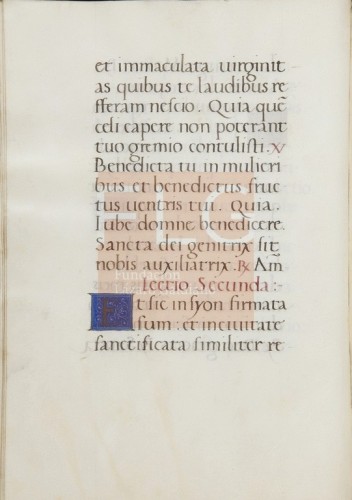 et immaculata uirginit
as quibus te laudibus re
fferam nescio. Quia quẽ
celi capere non poterant
tuo gremio contulisti. V
Benedicta tu in mulieri
bus et benedictus fruc
tus uentris tui. Quia.
Iube domne benedicere.
Sancta dei genitrix sit
nobis auxiliatrix. ℟ Am̃
Lectio Secunda:-
Et sic in syon firmata
sum: et in ciuitate
sanctificata similiter re
FLG
Fundación